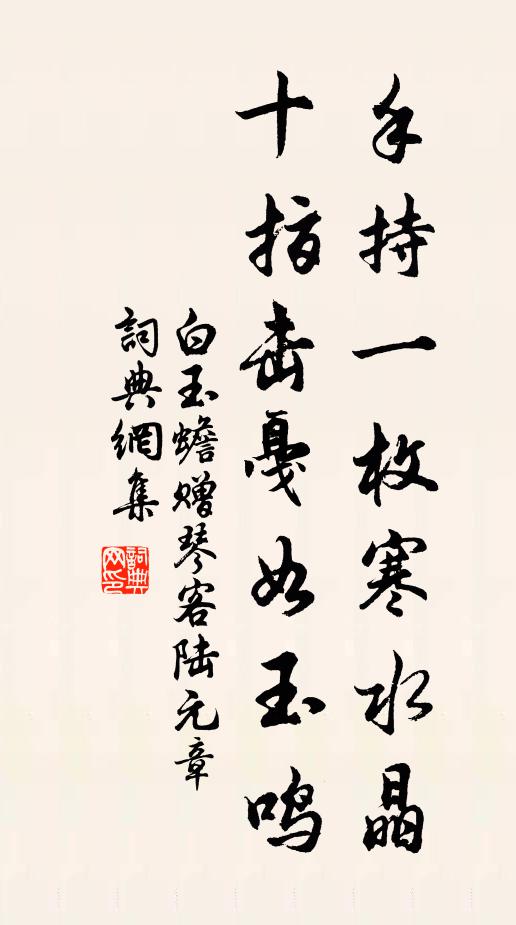 手持一枚寒水晶
十指击戛如玉鸣
白玉蟾赠琴客陆元章
詞典網集
詞典网印